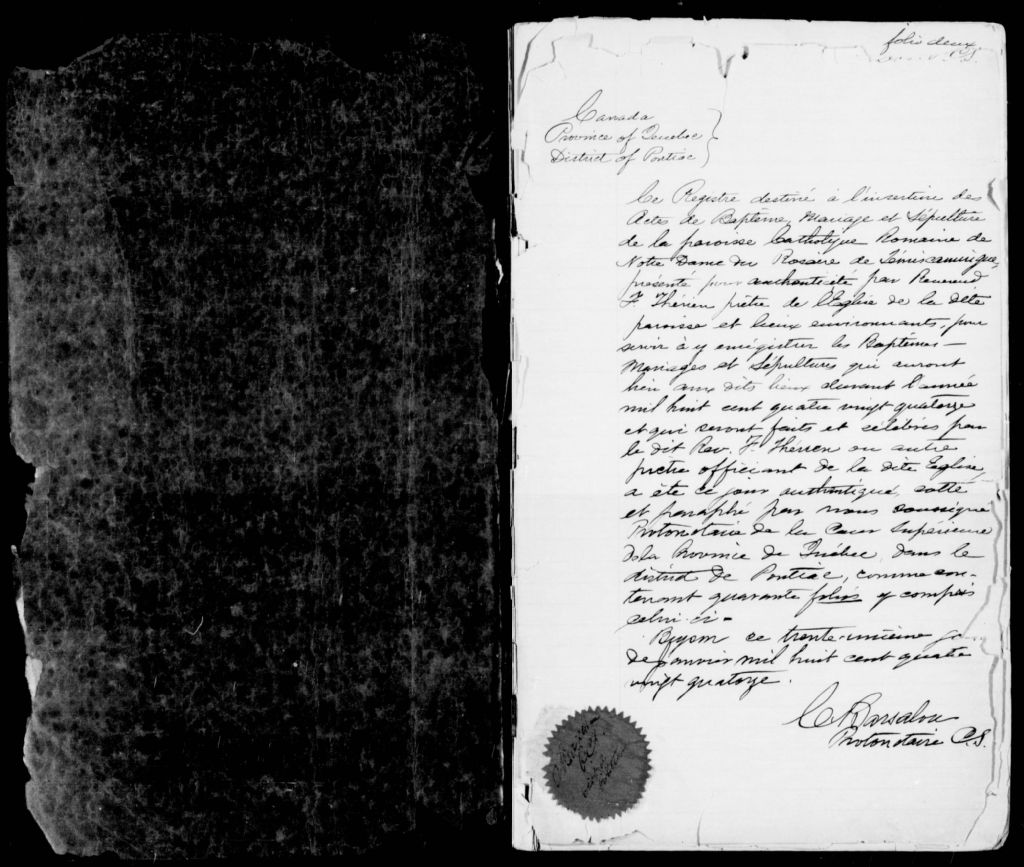 folio deux
C.S.
Canada
Province of Quebec
District of Pontiac
Ce Registre destiné à l'insertion des
Actes de Baptême, Mariage et Sépulture
de la paroisse Catholique Romaine de
Notre Dame du Rosaire de Témiscamingue,
présenté pour authenticité par Reverend
F. Thérien prêtre de l'Eglise de la dite
paroisse et lieux environnants, pour
servir à y enrégistrer les Baptêmes —
Mariages et Sépultures qui auront
lieu aux dits lieux durant l'année
mil huit cent quatre vingt quatorze
et qui seront faits et célébrés par
le dit Rev. F. Thérien ou autre
prêtre officiant de la dite Eglise,
a été ce jour authentiqué, cotté
et paraphé par nous soussigné
Protonotaire de la Cour Supérieure
de la Province de Québec, dans le
district de Pontiac, comme con-
tenant quarante folios y compris
celui-ci -
Bryson ce trente-unième
de janvier mil huit cent quatre
vingt quatorze.
C. Barsalou
Protonotaire C.S.